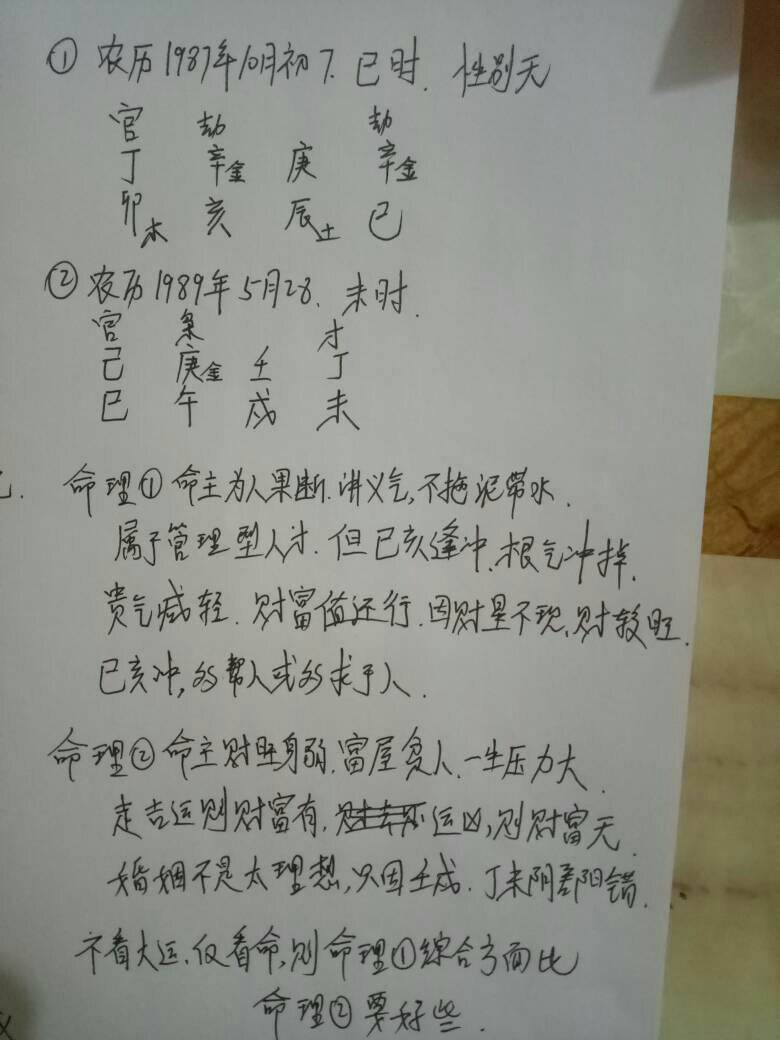 ① 农历1987年10月初7. 巳时. 性别无
官 劫 劫
丁 辛金 庚 辛金
卯木 亥 辰土 巳
② 农历1989年5月28. 未时.
官 枭 才
己 庚金 壬 丁
巳 午 戌 未
命理① 命主为人果断.讲义气,不拖泥带水.
属于管理型人才. 但巳亥逢冲.根气冲掉.
贵气减轻. 财富值还行.因财星不现,财较旺.
巳亥冲,必帮人或必求于人.
命理② 命主财旺身弱.富屋贫人.一生压力大.
走吉运则财富有,运凶,则财富无.
婚姻不是太理想,只因壬戌.丁未阴差阳错.
不看大运.仅看命,则命理①综合方面比
命理②要好些.